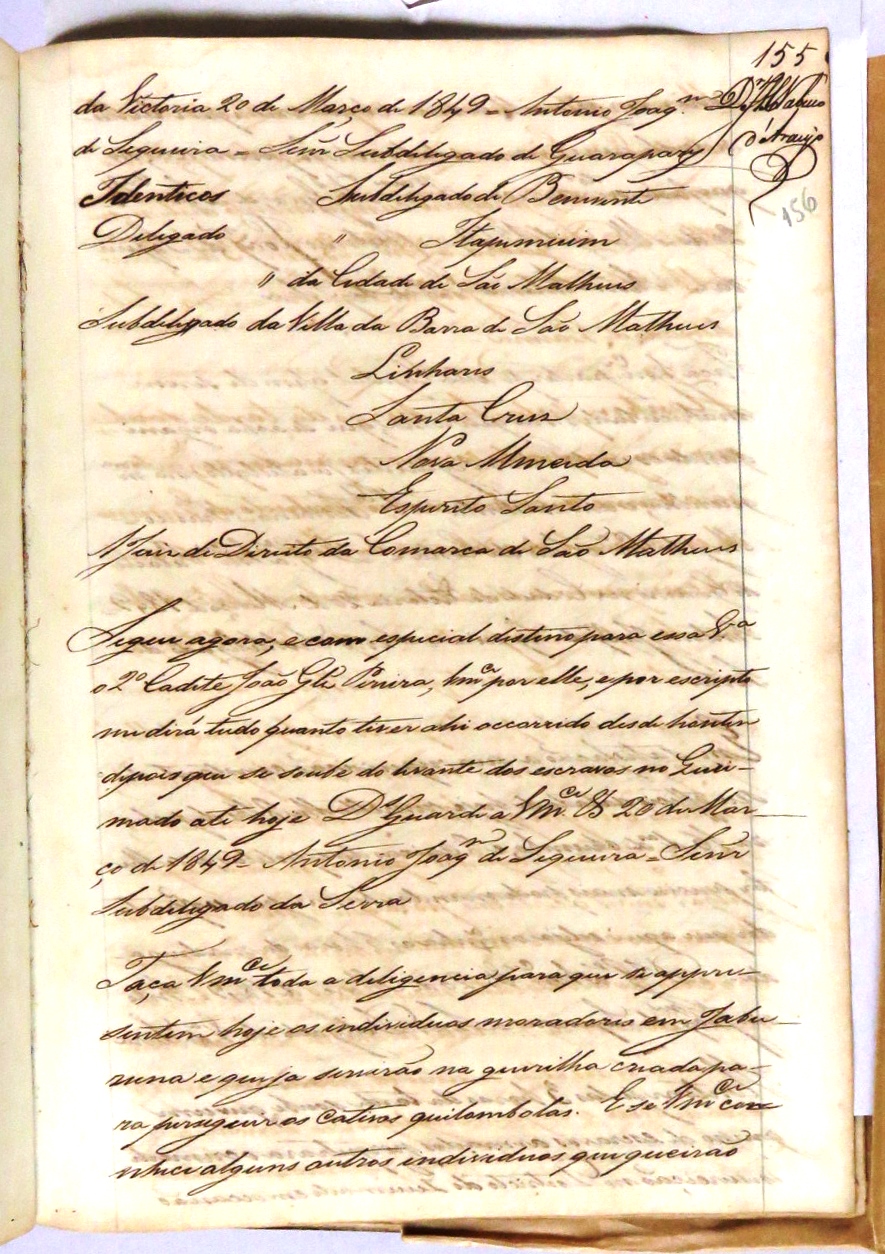 155
156
da Victoria 20 de Março de 1849 = Antonio Joaqm.
de Siqueira = Senr Subdelegado de Guarapary
Identicos Subdelegado de Benevente
Delegado " Itapemirim
" da Cidade de São Matheus
Subdelegado da Villa da Barra de São Matheus
Linhares
Santa Cruz
Nova Almeida
Espirito Santo
Juiz de Direito da Comarca de São Matheus
Segue agora, e com especial destino para essa Va
o 2º Cadete João Pereira, Vmce por elle, e por escripto
me dirá tudo quanto tiver ahi occorrido desde hontem
depois que se soube do levante dos escravos no Quei-
mado até hoje Ds Guarde a Vmce. 20 de Mar-
ço de 1849 = Antonio Joaqm de Siqueira = Senr
Subdelegado da Serra
Faça Vmce toda a diligencia para que se appre-
sentem hoje os individuos moradores em Jabu-
runa e que ja servirão na guerilha criada pa-
ra perseguir os cativos quilombolas. E se Vmce con-
nhece alguns outros individuos que queirão